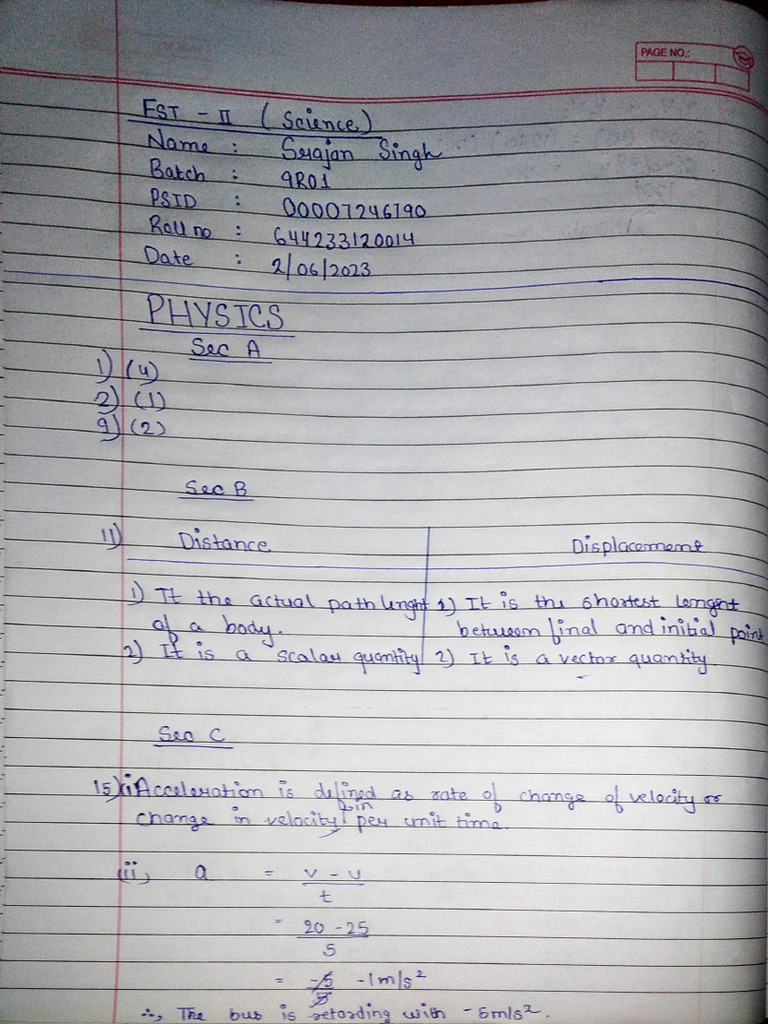 PAGE NO.:
FST - II (Science)
Name : Srajan Singh
Batch : 9R01
PSID : 00007246790
Roll no : 644233120014
Date : 2/06/2023
PHYSICS
Sec A
1) (4)
2) (1)
9) (2)
Sec B
11) Distance Displacement
1) It the actual path lenght 1) It is the shortest lenght
of a body. between final and initial point
2) It is a scalar quantity 2) It is a vector quantity
Sec C
15) (i) Acceleration is defined as rate of change of velocity or
change in velocity in per unit time.
(ii) a = v - u
t
= 20 - 25
5
= -5 -1m/s²
5
∴, The bus is retarding with -5m/s².